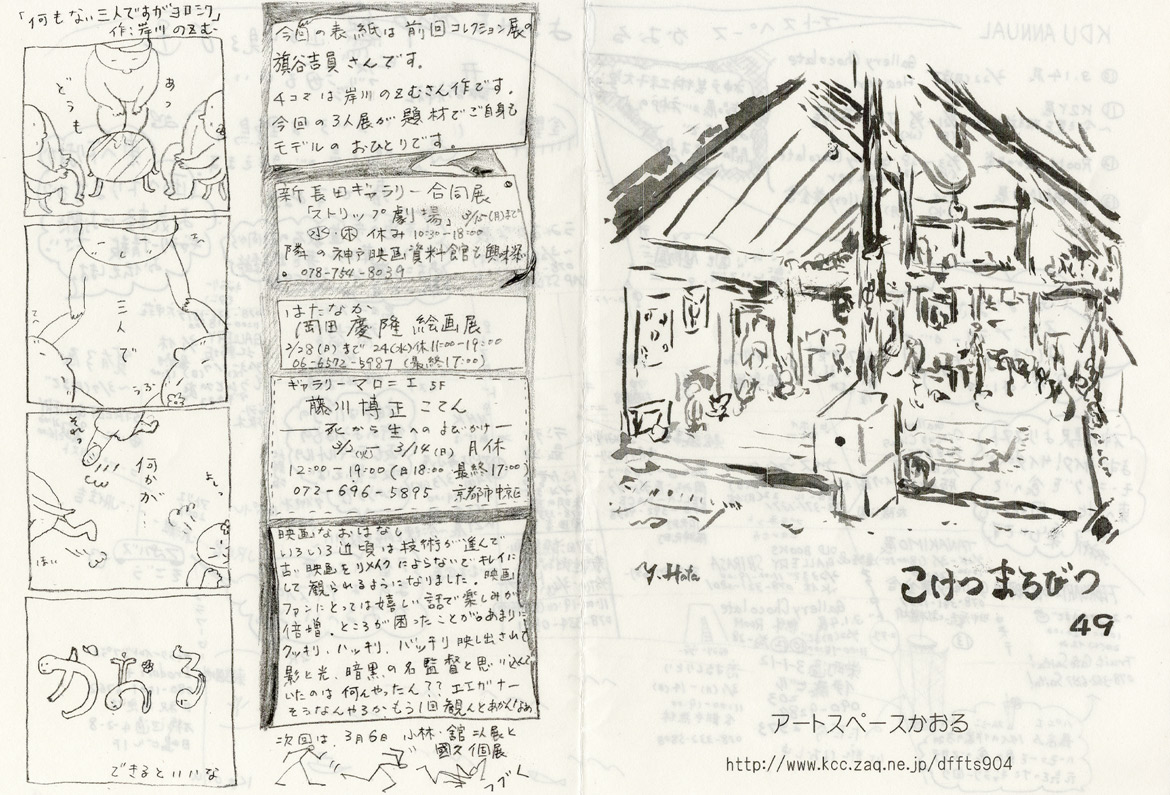 「何もない三人ですがヨロシク」
作：岸川のぞむ
あっ
どうも
三人で
それっ
何かが…
よっ
はい
かおる
できるといいな
今回の表紙は前回コレクション展の
旗谷吉員さんです。
4コマは岸川のぞむさん作です。
今回の3人展が題材でご自身も
モデルのおひとりです。
新長田ギャラリー合同展
「ストリップ劇場」 (月)まで
水・木 休み 10:30-18:00
隣の神戸映画資料館も
078-754-8039
はたなか
岡田慶隆 絵画展
2/28(日)まで 24(水)休 11:00-19:00
06-6572-5987 (最終17:00)
ギャラリーマロニエ 5F
藤川博正 こてん
—死から生へのよびかけ—
(火)- 3/14(日) 月休
12:00-19:00(日18:00 最終17:00)
072-696-5895 京都市中京区
映画なおはなし
いろいろ近頃は技術が進んで
古い映画をリメイクによらないで、キレイに
して観られるようになりました。映画
ファンにとっては嬉しい話で楽しみが
倍増。ところが困ったことがあるあまりに
クッキリ、ハッキリ、バッチリ映し出されて
影と光、暗黒の名監督と思い込んで
いたのは何んやったん？？エエがナー
そうなんやろか、もう1回観んとあかんなぁ
次回は、3月6日 小林・舘 二人展と
國久個展
つづく
Y. Hata
こけつまろびつ
49
アートスペースかおる
http://www.kcc.zaq.ne.jp/dffts904